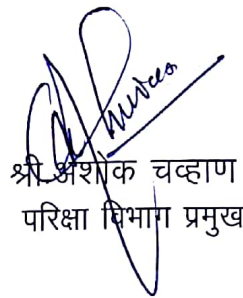 श्री. अशोक चव्हाण
परिक्षा विभाग प्रमुख